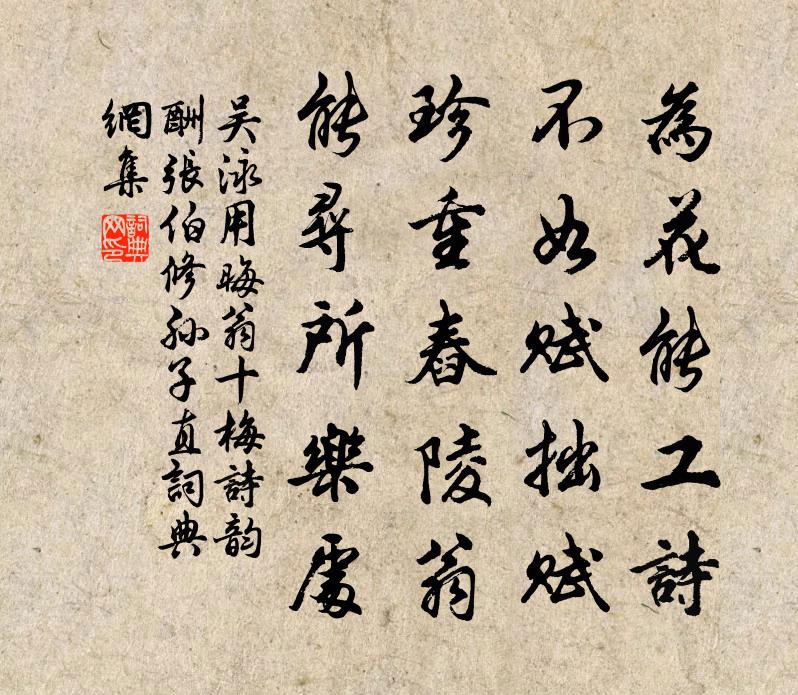 為花能工詩
不如賦拙賦
珍重舂陵翁
能尋所樂處
吴泳用晦翁十梅詩韵
酬張伯修孙子直詞典
網集
詞典
网印